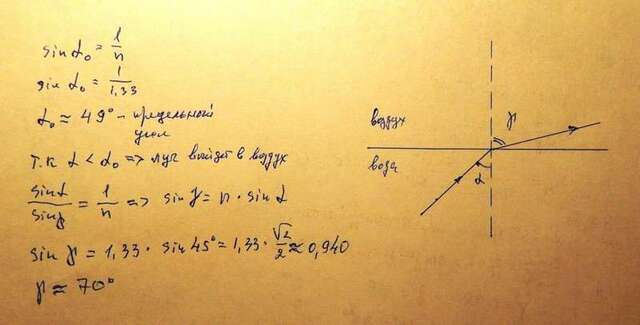 sin α₀ = 1/n
sin α₀ = 1/1,33
α₀ ≈ 49° - предельный
угол
т.к α < α₀ => луч выйдет в воздух
sin α/sin γ = 1/n => sin γ = n · sin α
sin γ = 1,33 · sin 45° = 1,33 · √2/2 ≈ 0,940
γ ≈ 70°
воздух
γ
вода
α